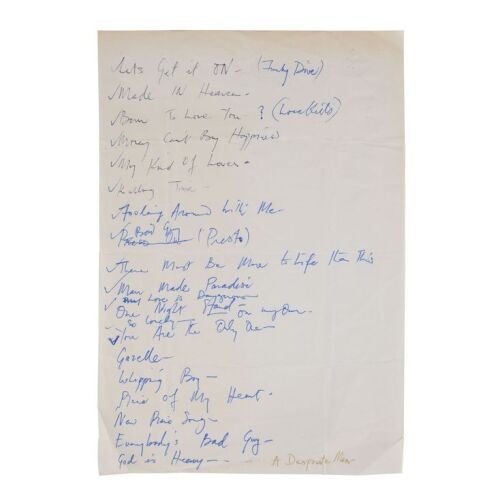 ✓Lets Get it ON - (Funky Dive)
✓Made IN Heaven -
✓Born To Love You - ? (Love Kills)
✓Money Cant Buy Happiness
✓My Kind Of Lover -
✓Killing Time -
✓Fooling Around With Me -
✓ Bad Guy
(Presto)
✓There Must Be More to Life than This
✓Man Made Paradise
✓ Love is Dangerous
One Night Stand - on my own -
✓ - So Lonely -
✓You Are the Only One -
Gazelle -
Whipping Boy -
Piece of My Heart -
New Piano Song -
Everybody's Bad Guy -
God is Heavy - - A Desperate Man